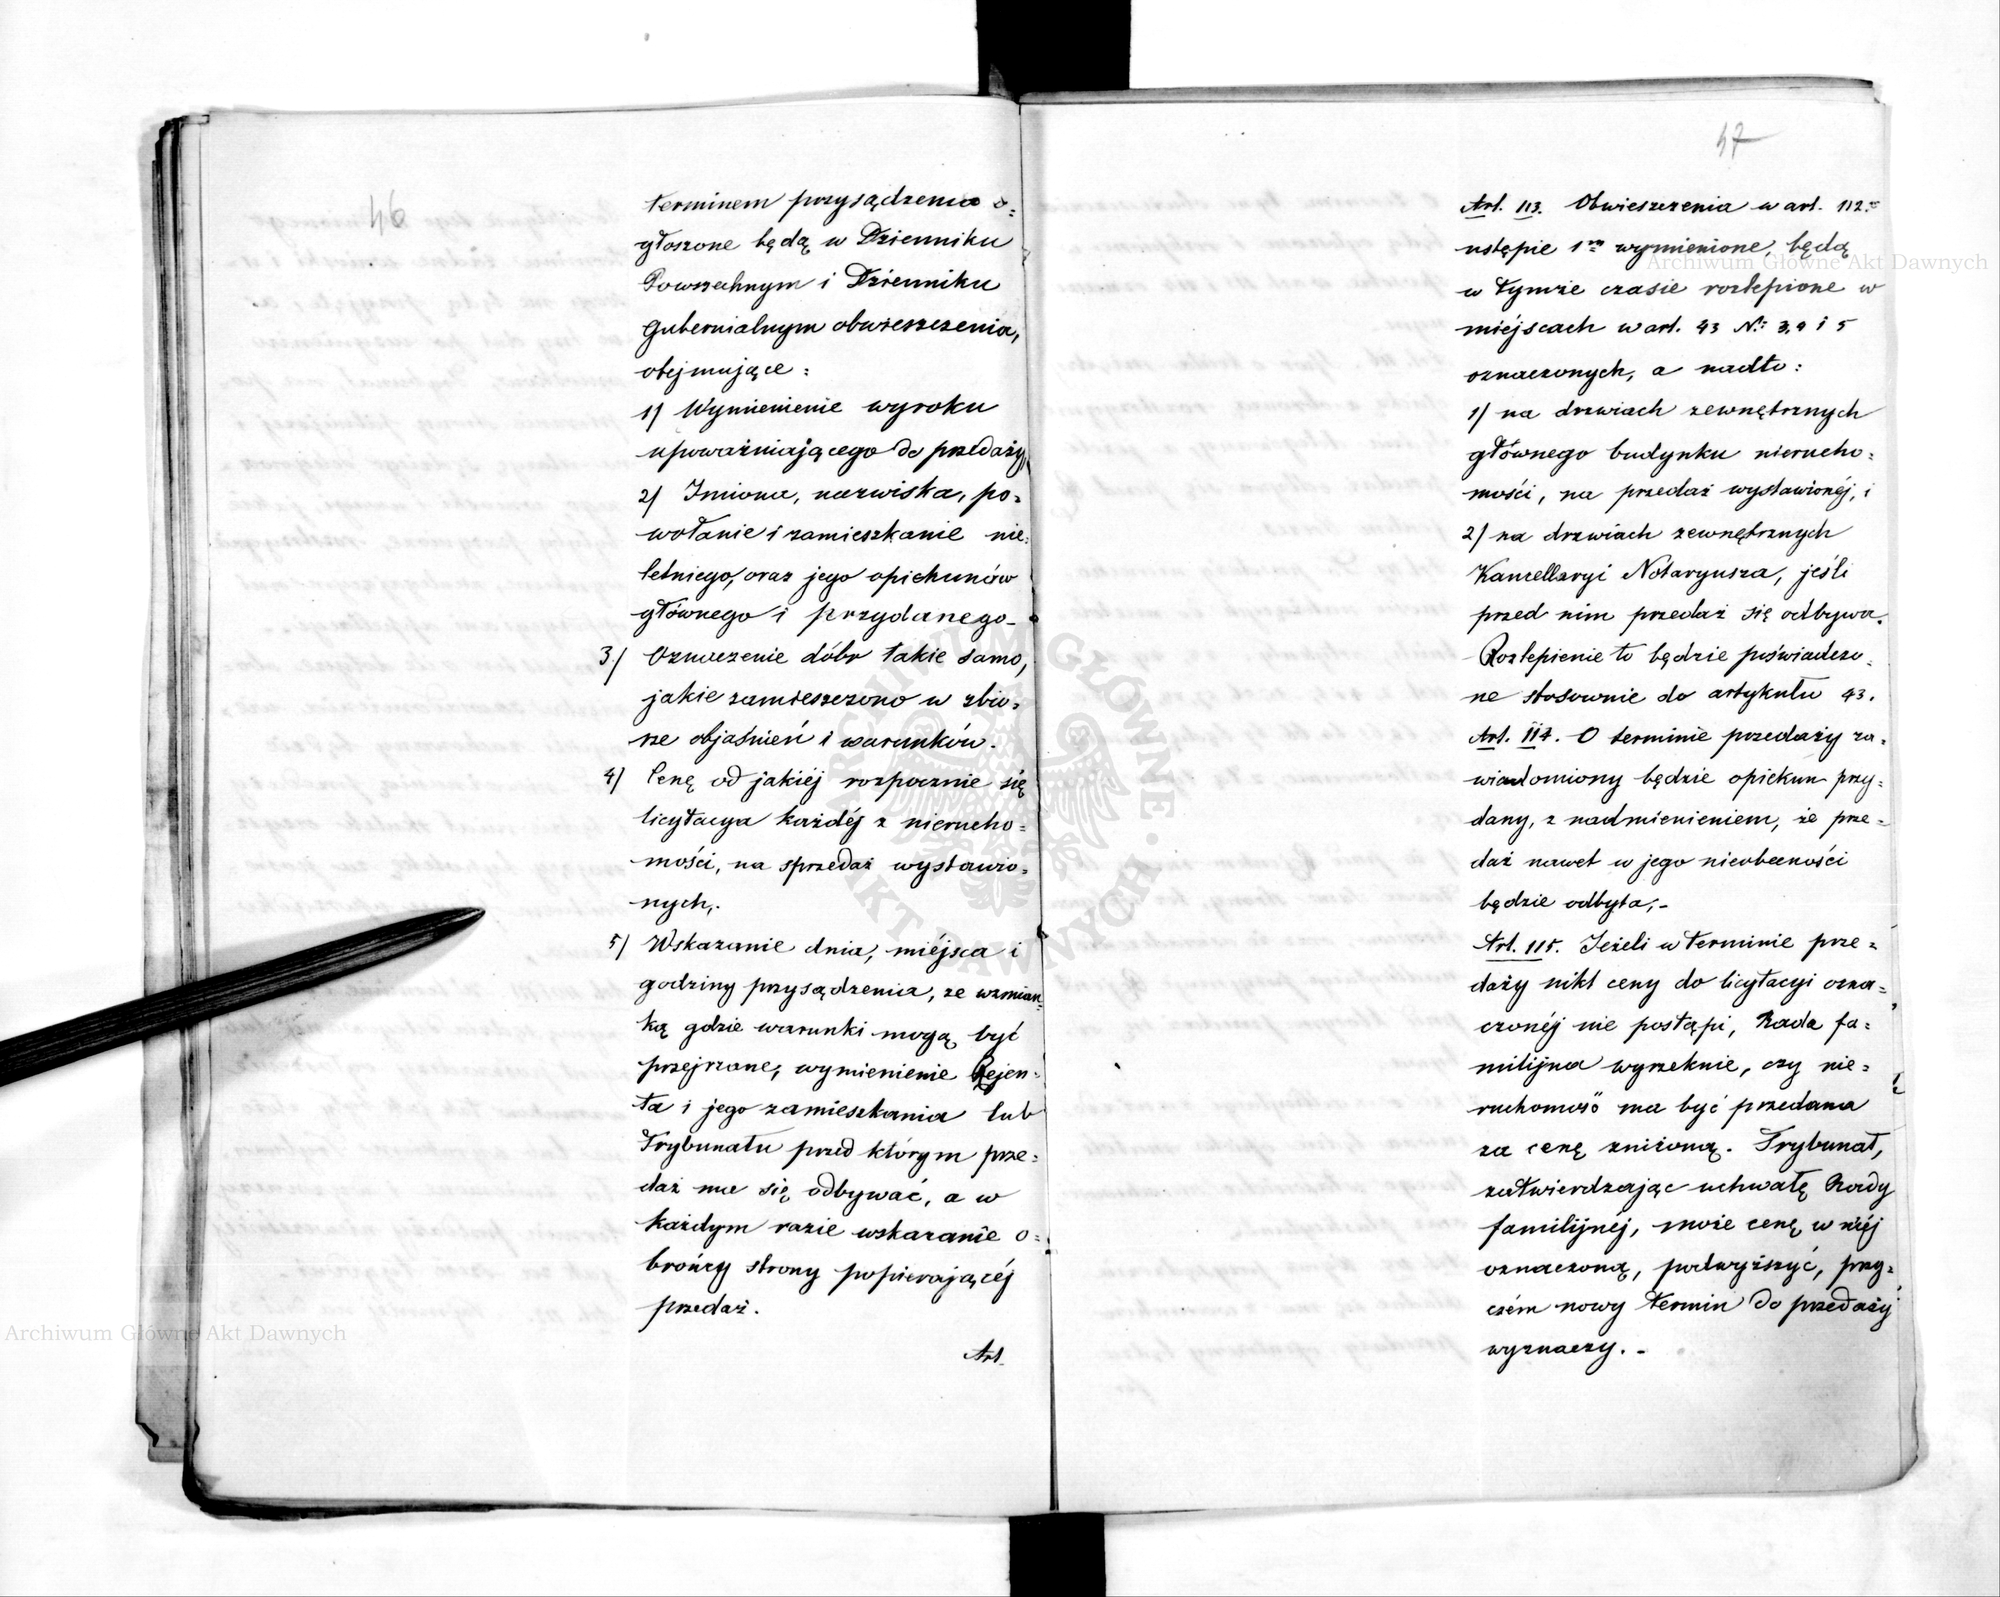 46
terminem przysądzenia o=
głoszone będą w Dzienniku
Powszechnym i Dzienniku
Gubernialnym obwieszczenia,
obejmujące:
1/ Wymienienie wyroku
upoważniającego do przedaży,
2/ Imiona, nazwiska, po=
wołanie i zamieszkanie nie=
letniego, oraz jego opiekunów
głównego i przydanego_
3/ Oznaczenie dóbr takie samo,
jakie zamieszczono w zbio=
rze objaśnień i warunków.
4/ Cenę od jakiéj rozpocznie się
licytacya każdéj z nierucho=
mości, na sprzedaż wystawio=
nych,.
5/ Wskazanie dnia, miéjsca i
godziny przysądzenia, ze wzmian=
ką gdzie warunki mogą być
przejrzane, wymienienie Rejen=
ta i jego zamieszkania lub
Trybunału przed którym prze=
daż ma się odbywać, a w
każdym razie wskazanie o=
brońcy strony popierającéj
przedaż.
Art.
47
Art. 113. Obwieszczenia w art. 112.
ustępie 1m wymienione, będą
w tymże czasie rozlepione w
miéjscach w art. 43 No 3, 4 i 5
oznaczonych, a nadto:
1/ na drzwiach zewnętrznych
głównego budynku nierucho=
mości, na przedaż wystawionéj, i
2/ na drzwiach zewnętrznych
Kancellaryi Notaryusza, jeśli
przed nim przedaż się odbywa.
Rozlepienie to będzie poświadczo=
ne stosownie do artykułu 43.
Art. 114. O terminie przedaży za=
wiadomiony będzie opiekun przy=
dany, z nadmienieniem, że prze=
daż nawet w jego nieobecności
będzie odbyta,-
Art. 115. Jeżeli w terminie prze=
daży nikt ceny do licytacyi ozna=
czonéj nie postąpi, Rada fa=
milijna wyrzeknie, czy nie=
ruchomość ma być przedana
za cenę zniżoną. Trybunał,
zatwierdzając uchwałę Rady
familijnéj, może cenę w niéj
oznaczoną, podwyższyć, przy=
czém nowy termin do przedaży
wyznaczy. -
Archiwum Główne Akt Dawnych
Archiwum Główne Akt Dawnych
ARCHIWUM GŁÓWNE · AKT DAWNYCH ·